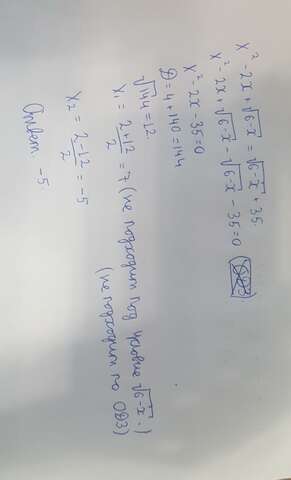 x² - 2x + √6-x = √6-x + 35
x² - 2x + √6-x - √6-x - 35 = 0
x² - 2x - 35 = 0
D = 4 + 140 = 144
√144 = 12.
x₁ = 2+12/2 = 7 (не подходит под условие √6-x.)
(не подходит по ОДЗ)
x₂ = 2-12/2 = -5
Ответ: -5.